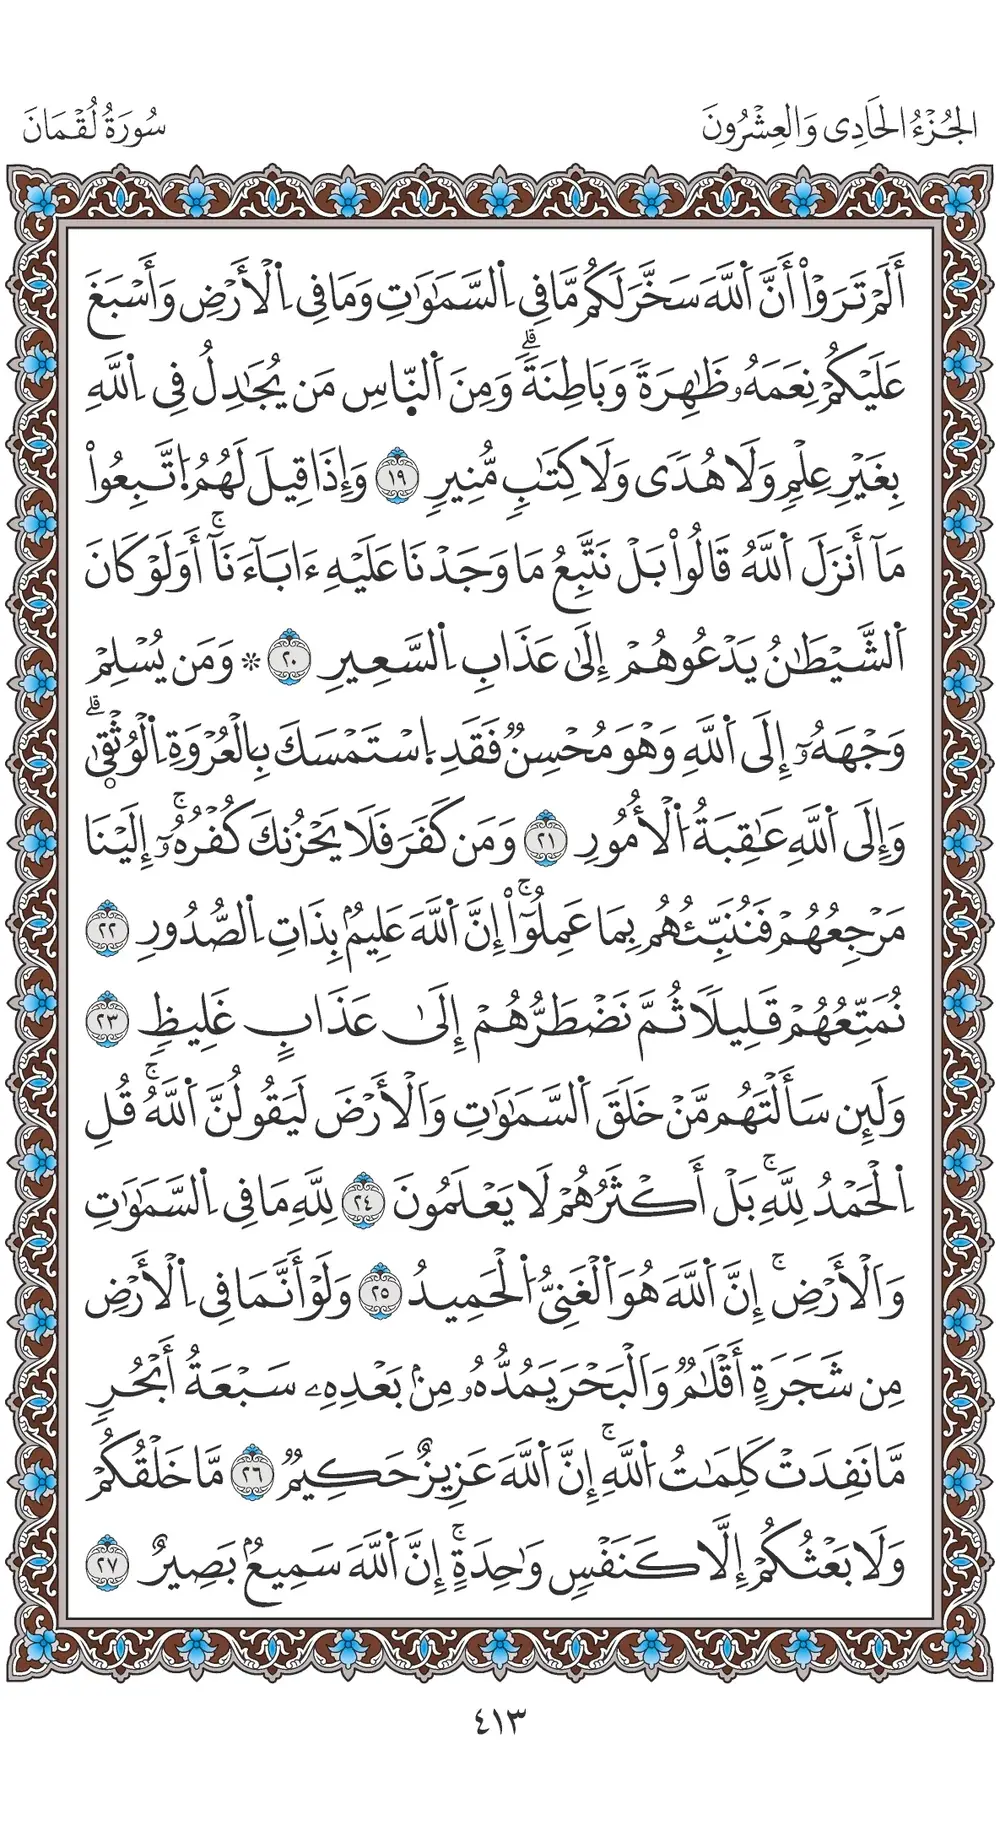 الجُزْءُ الحَادِى وَالعِشْرُونَ
سُورَةُ لُقْمَانَ
أَلَمْ تَرَوْا۟ أَنَّ اَ۬للَّهَ سَخَّرَ لَكُم مَّا فِي اِ۬لسَّمَٰوَٰتِ وَمَا فِي اِ۬لْأَرْضِ وَأَسْبَغَ
عَلَيْكُمْ نِعَمَهُۥ ظَٰهِرَةٗ وَبَاطِنَةٗۗ وَمِنَ اَ۬لنَّاسِ مَن يُجَٰدِلُ فِي اِ۬للَّهِ
بِغَيْرِ عِلْمٖ وَلَا هُدٗى وَلَا كِتَٰبٖ مُّنِيرٖ ١٩ وَإِذَا قِيلَ لَهُمُ اُ۪تَّبِعُوا۟
مَآ أَنزَلَ اَ۬للَّهُ قَالُوا۟ بَلْ نَتَّبِعُ مَا وَجَدْنَا عَلَيْهِ ءَابَآءَنَآۚ أَوَلَوْ كَانَ
اَ۬لشَّيْطَٰنُ يَدْعُوهُمْ إِلَىٰ عَذَابِ اِ۬لسَّعِيرِ ٢٠ ۞ وَمَن يُسْلِمْ
وَجْهَهُۥٓ إِلَى اَ۬للَّهِ وَهْوَ مُحْسِنٞ فَقَدِ اِ۪سْتَمْسَكَ بِالْعُرْوَةِ اِ۬لْوُثْق۪ىٰۗ
وَإِلَى اَ۬للَّهِ عَٰقِبَةُ اُ۬لْأُمُورِ ٢١ وَمَن كَفَرَ فَلَا يَحْزُنكَ كُفْرُهُۥٓۚ إِلَيْنَا
مَرْجِعُهُمْ فَنُنَبِّئُهُم بِمَا عَمِلُوٓا۟ۚ إِنَّ اَ۬للَّهَ عَلِيمُۢ بِذَاتِ اِ۬لصُّدُورِ ٢٢
نُمَتِّعُهُمْ قَلِيلٗا ثُمَّ نَضْطَرُّهُمْ إِلَىٰ عَذَابٍ غَلِيظٖ ٢٣
وَلَئِن سَأَلْتَهُم مَّنْ خَلَقَ اَ۬لسَّمَٰوَٰتِ وَالْأَرْضَ لَيَقُولُنَّ اَ۬للَّهُۚ قُلِ
اِ۬لْحَمْدُ لِلَّهِۚ بَلْ أَكْثَرُهُمْ لَا يَعْلَمُونَ ٢٤ لِلَّهِ مَا فِي اِ۬لسَّمَٰوَٰتِ
وَالْأَرْضِۚ إِنَّ اَ۬للَّهَ هُوَ اَ۬لْغَنِيُّ اُ۬لْحَمِيدُ ٢٥ وَلَوْ أَنَّمَا فِي اِ۬لْأَرْضِ
مِن شَجَرَةٍ أَقْلَٰمٞ وَالْبَحْرَ يَمُدُّهُۥ مِنۢ بَعْدِهِۦ سَبْعَةُ أَبْحُرٖ
مَّا نَفِدَتْ كَلِمَٰتُ اُ۬للَّهِۚ إِنَّ اَ۬للَّهَ عَزِيزٌ حَكِيمٞ ٢٦ مَّا خَلْقُكُمْ
وَلَا بَعْثُكُمْ إِلَّا كَنَفْسٖ وَٰحِدَةٍۚ إِنَّ اَ۬للَّهَ سَمِيعُۢ بَصِيرٌ ٢٧
٤١٣